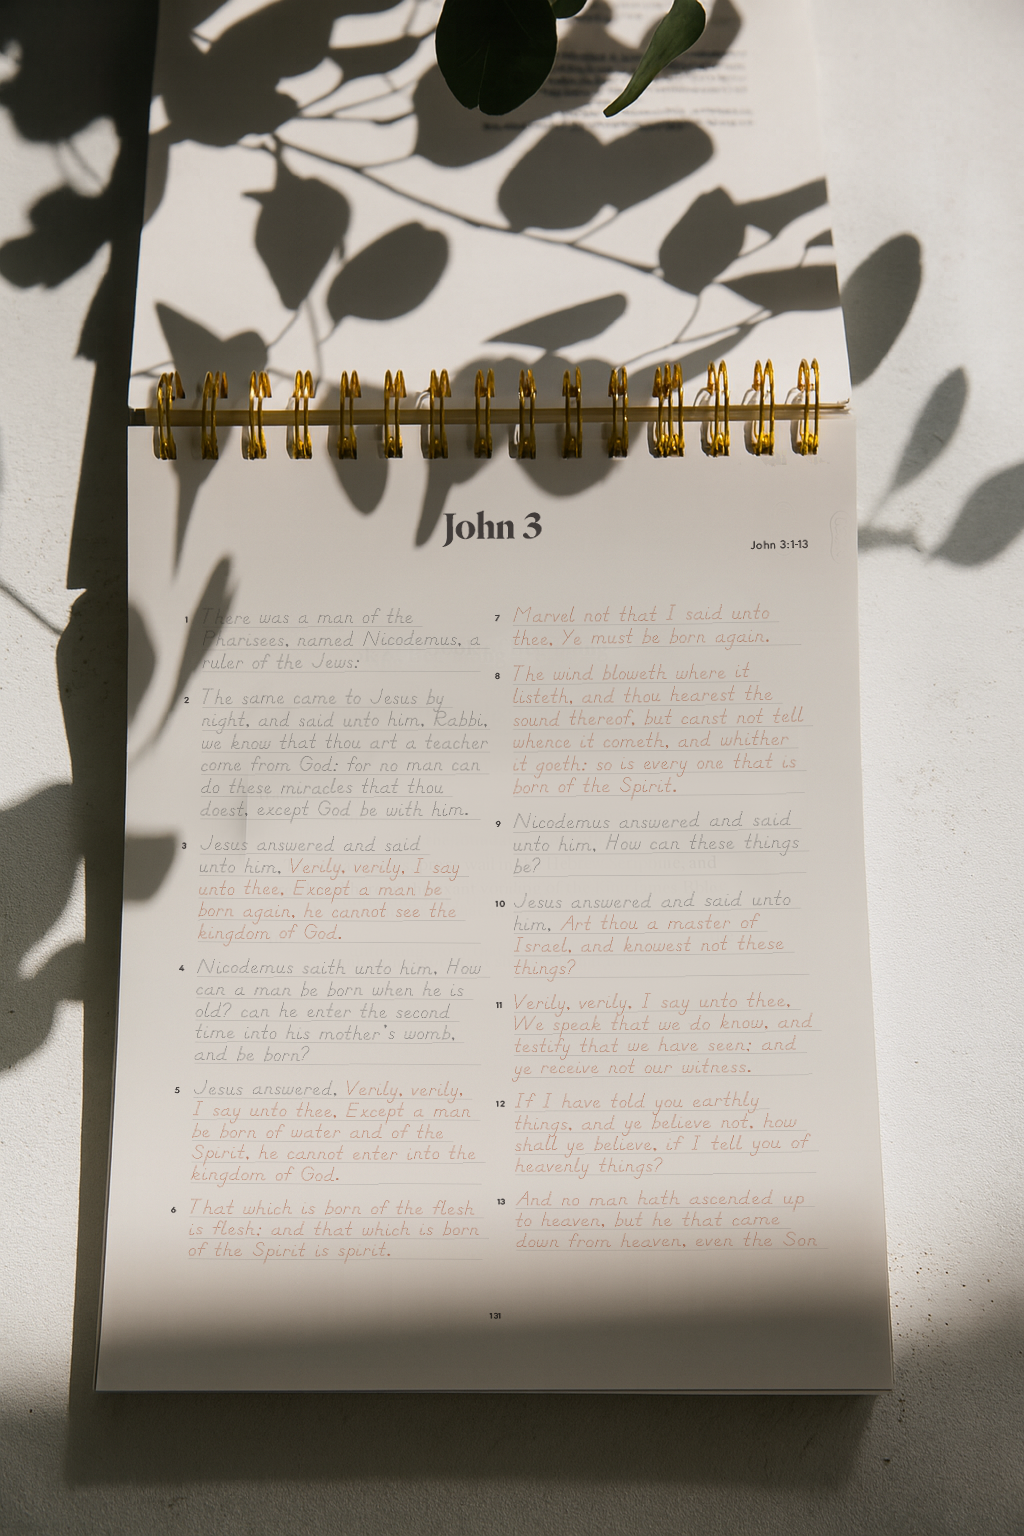 John 3
John 3:1-13
1 There was a man of the
Pharisees, named Nicodemus, a
ruler of the Jews:
2 The same came to Jesus by
night, and said unto him, Rabbi,
we know that thou art a teacher
come from God: for no man can
do these miracles that thou
doest, except God be with him.
3 Jesus answered and said
unto him, Verily, verily, I say
unto thee, Except a man be
born again, he cannot see the
kingdom of God.
4 Nicodemus saith unto him, How
can a man be born when he is
old? can he enter the second
time into his mother's womb,
and be born?
5 Jesus answered, Verily, verily,
I say unto thee, Except a man
be born of water and of the
Spirit, he cannot enter into the
kingdom of God.
6 That which is born of the flesh
is flesh; and that which is born
of the Spirit is spirit.
7 Marvel not that I said unto
thee, Ye must be born again.
8 The wind bloweth where it
listeth, and thou hearest the
sound thereof, but canst not tell
whence it cometh, and whither
it goeth: so is every one that is
born of the Spirit.
9 Nicodemus answered and said
unto him, How can these things
be?
10 Jesus answered and said unto
him, Art thou a master of
Israel, and knowest not these
things?
11 Verily, verily, I say unto thee,
We speak that we do know, and
testify that we have seen; and
ye receive not our witness.
12 If I have told you earthly
things, and ye believe not, how
shall ye believe, if I tell you of
heavenly things?
13 And no man hath ascended up
to heaven, but he that came
down from heaven, even the Son
131